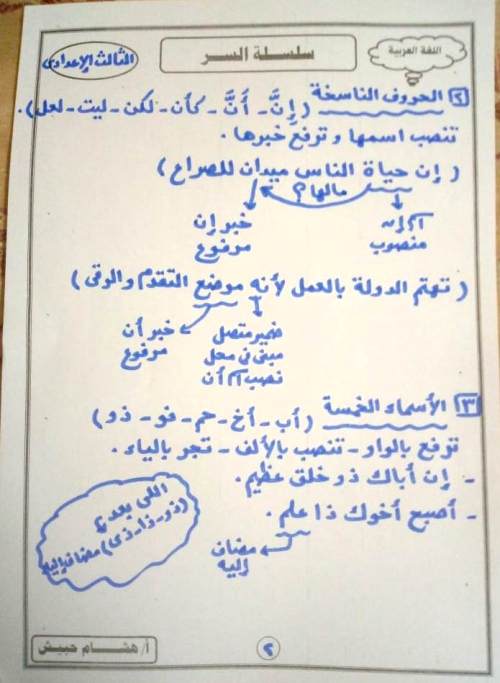 اللغة العربية
سلسلة السر
الثالث الإعدادى
٢ الحروف الناسخة (إنَّ - أَنَّ - كأن - لكن - ليت - لعل).
تنصب اسمها وترفع خبرها.
(إن حياة الناس ميدان للصراع)
مالها؟
اسم إن خبر إن
منصوب مرفوع
(تهتم الدولة بالعمل لأنه موضع التقدم والرقى)
ضمير متصل خبر أن
مبنى فى محل مرفوع
نصب اسم أن
٣ الأسماء الخمسة (أب - أخ - حم - فو - ذو)
ترفع بالواو - تنصب بالألف - تجر بالياء.
- إن أباك ذو خلق عظيم.
- أصبح أخوك ذا علم.
مضاف
إليه
اللى بعد
(ذو - ذا - ذى) مضاف إليه
٢
أ/ هشام حبيش